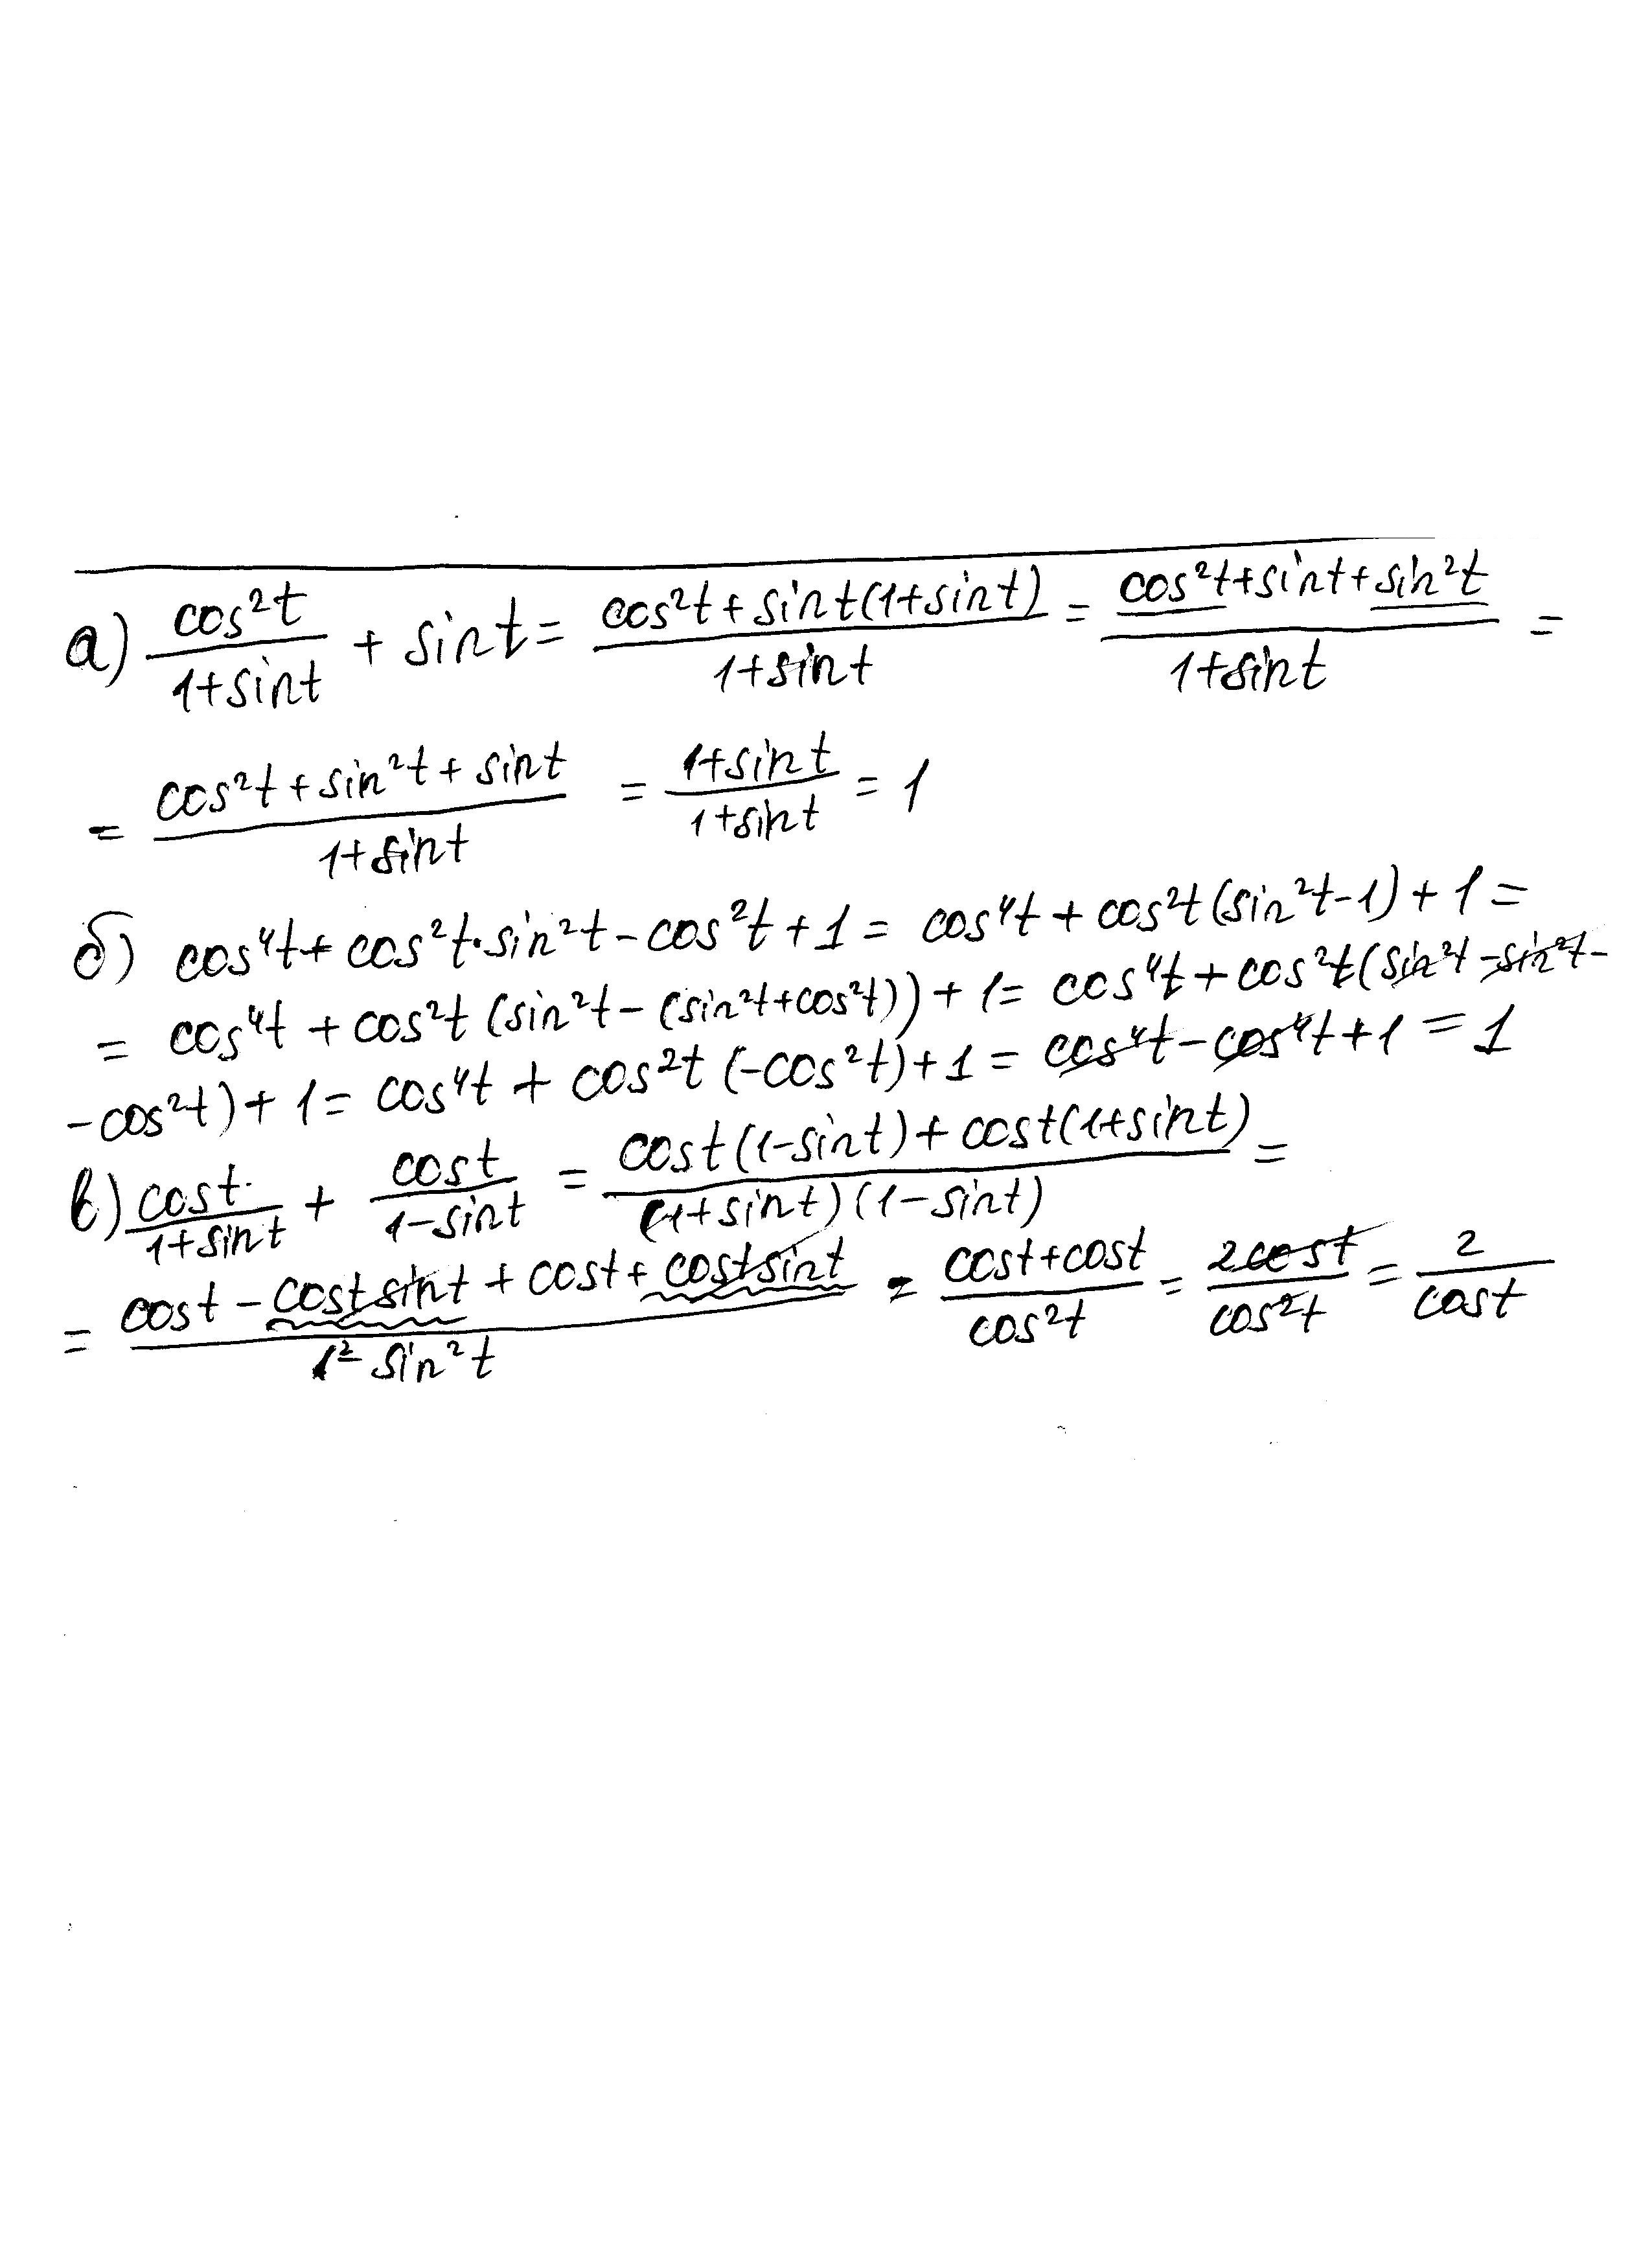 а) cos²t/(1+sint) + sint = (cos²t + sint(1+sint))/(1+sint) = (cos²t+sint+sin²t)/(1+sint) =
= (cos²t + sin²t + sint)/(1+sint) = (1+sint)/(1+sint) = 1
б) cos⁴t + cos²t·sin²t - cos²t + 1 = cos⁴t + cos²t(sin²t-1) + 1 =
= cos⁴t + cos²t (sin²t - (sin²t+cos²t)) + 1 = cos⁴t + cos²t(sin²t - sin²t -
- cos²t) + 1 = cos⁴t + cos²t (-cos²t) + 1 = cos⁴t - cos⁴t + 1 = 1
в) cost/(1+sint) + cost/(1-sint) = (cost(1-sint) + cost(1+sint))/((1+sint)(1-sint)) =
= (cost - costsint + cost + costsint)/(1² - sin²t) = (cost+cost)/cos²t = 2cost/cos²t = 2/cost